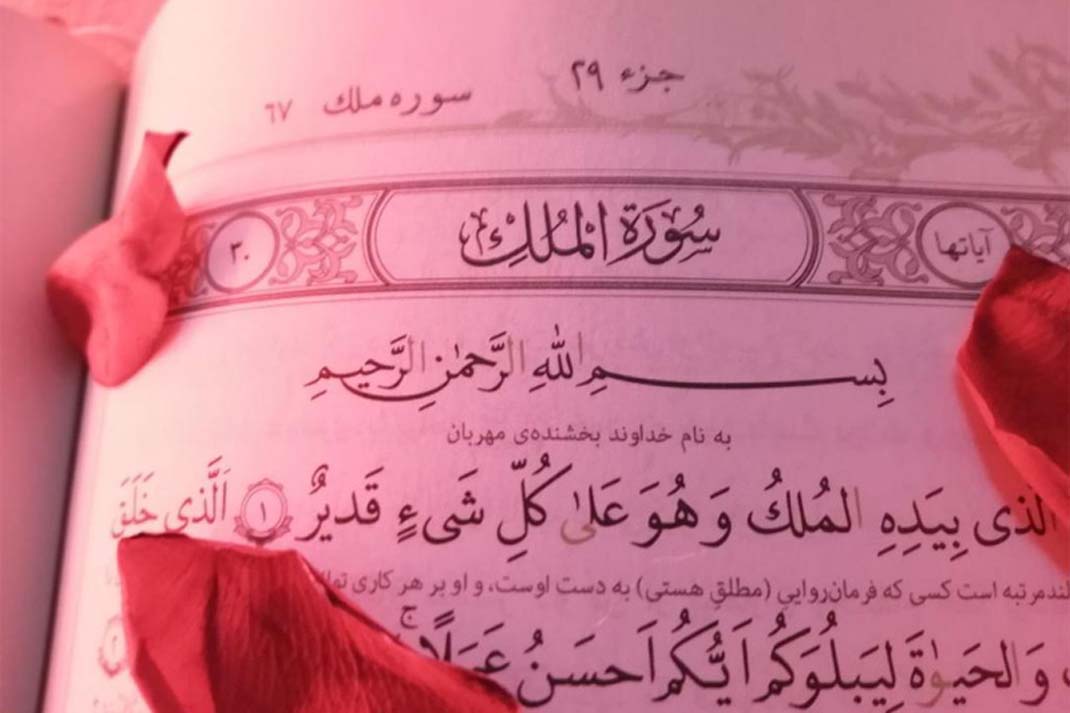 جزء ۲۹
سوره ملك ۶۷
آیاتها سُورَةُ الْمُلْكِ ۳۰
بِسمِ اللّهِ الرَّحمٰنِ الرَّحیمِ
به نام خداوند بخشنده‌ی مهربان
الَّذی بِیَدِهِ المُلكُ وَ هُوَ عَلیٰ كُلِّ شَیءٍ قَدیرٌ ﴿۱﴾ اَلَّذی خَلَقَ
بلندمرتبه است کسی که فرمان‌روایی (مطلقِ هستی) به دست اوست، و او بر هر کاری
وَالحَیوٰةَ لِیَبلُوَكُم اَیُّكُم اَحسَنُ عَمَلًا ۚ ﴿۲﴾